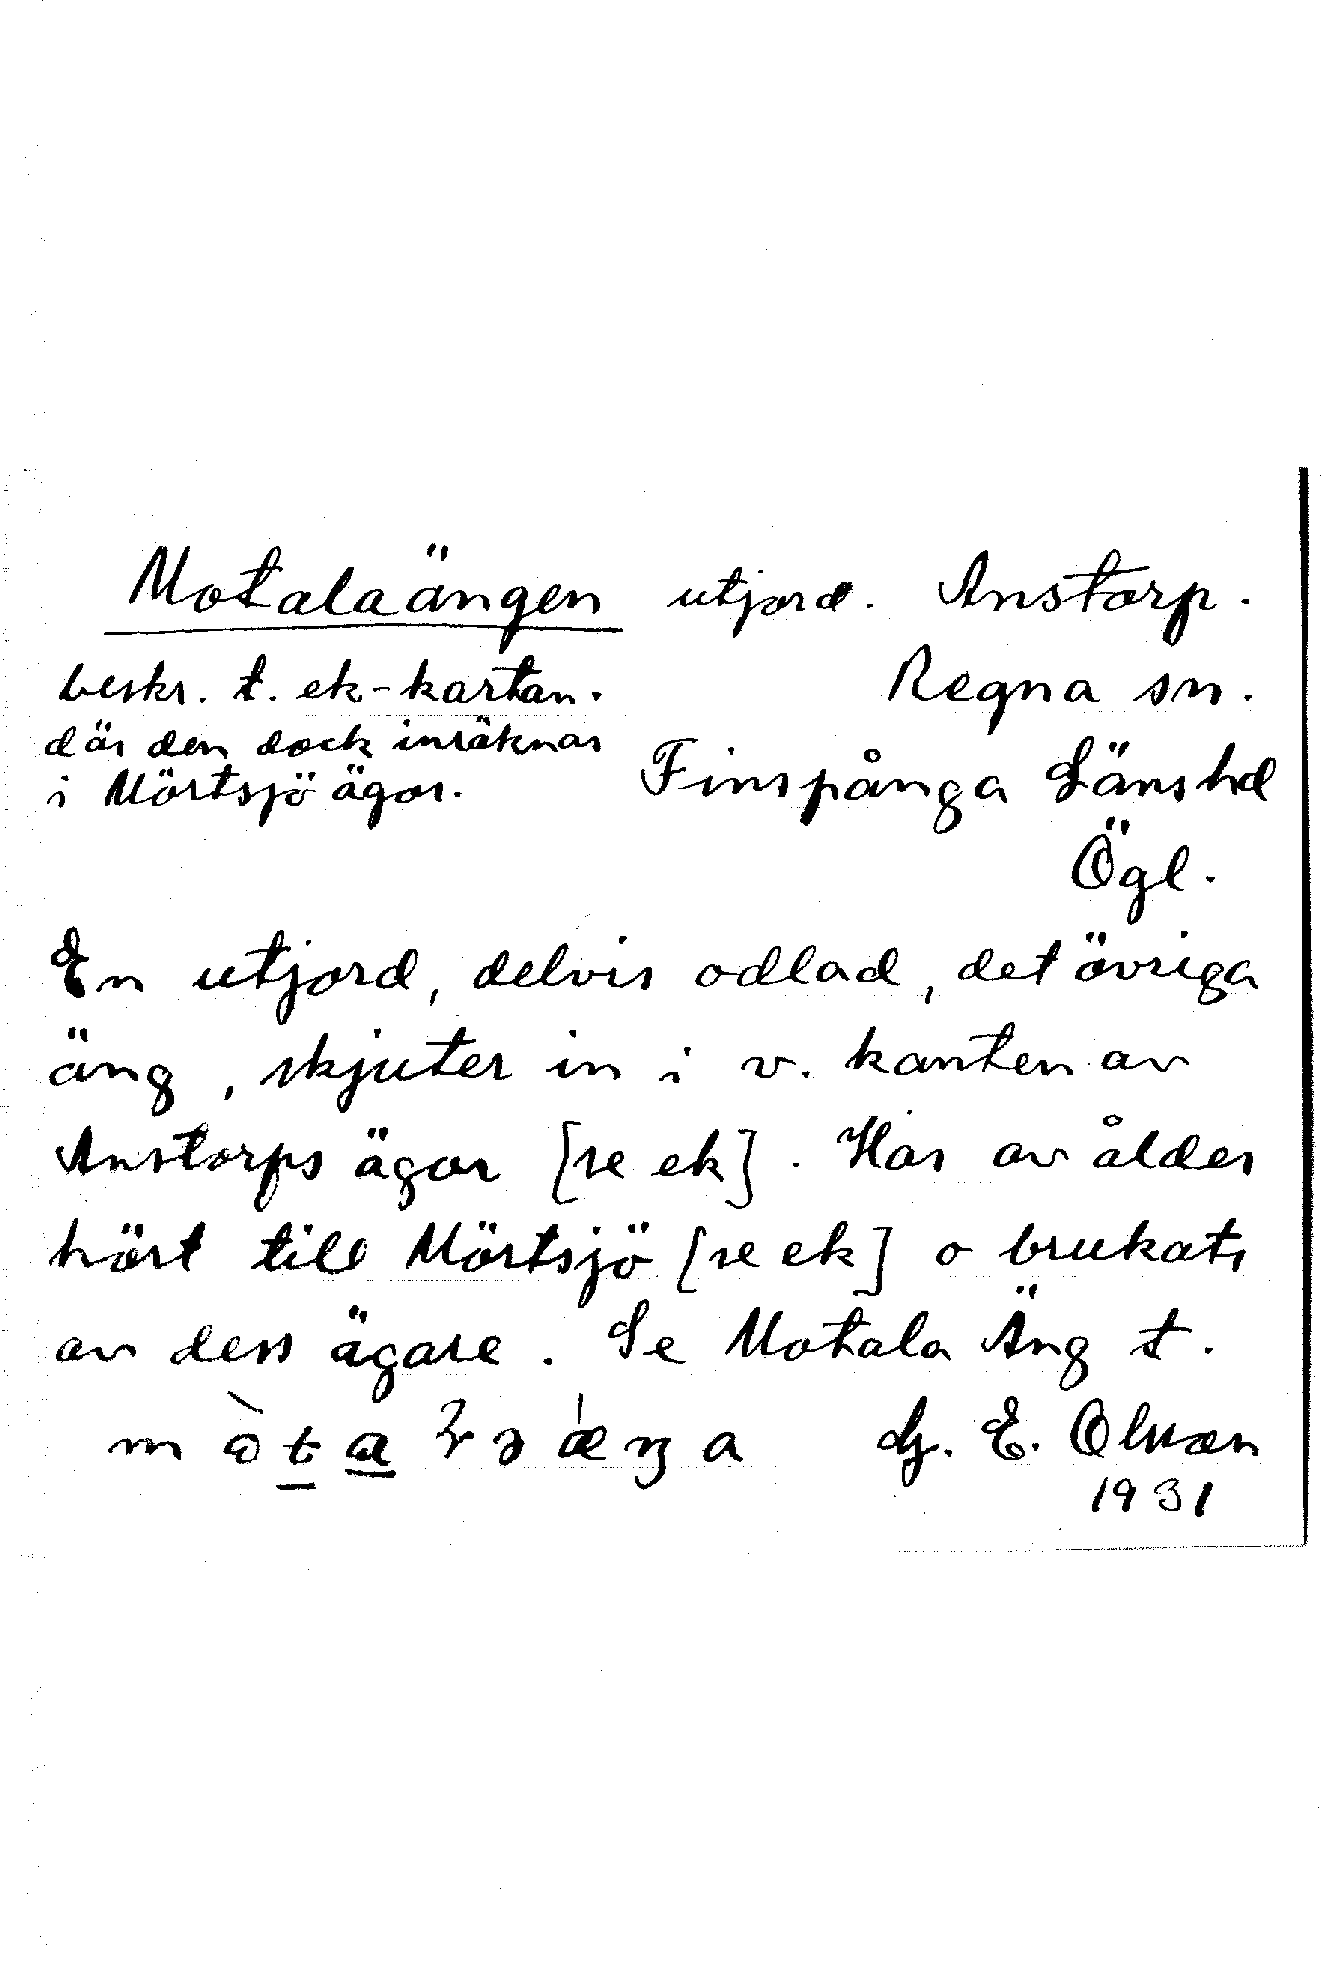 Motalaängen utjord. Anstorp.
beskr. t. ek-kartan. Regna sn.
där den dock inräknas
i Mörtsjö ägor. Finspånga Länshd
Ögl.
En utjord, delvis odlad, det övriga
äng, skjuter in i v. kanten av
Anstorps ägor [se ek]. Har av ålder
hört till Mörtsjö [se ek] o brukats
av dess ägare. Se Motala Äng t.
E. Olsson
1931